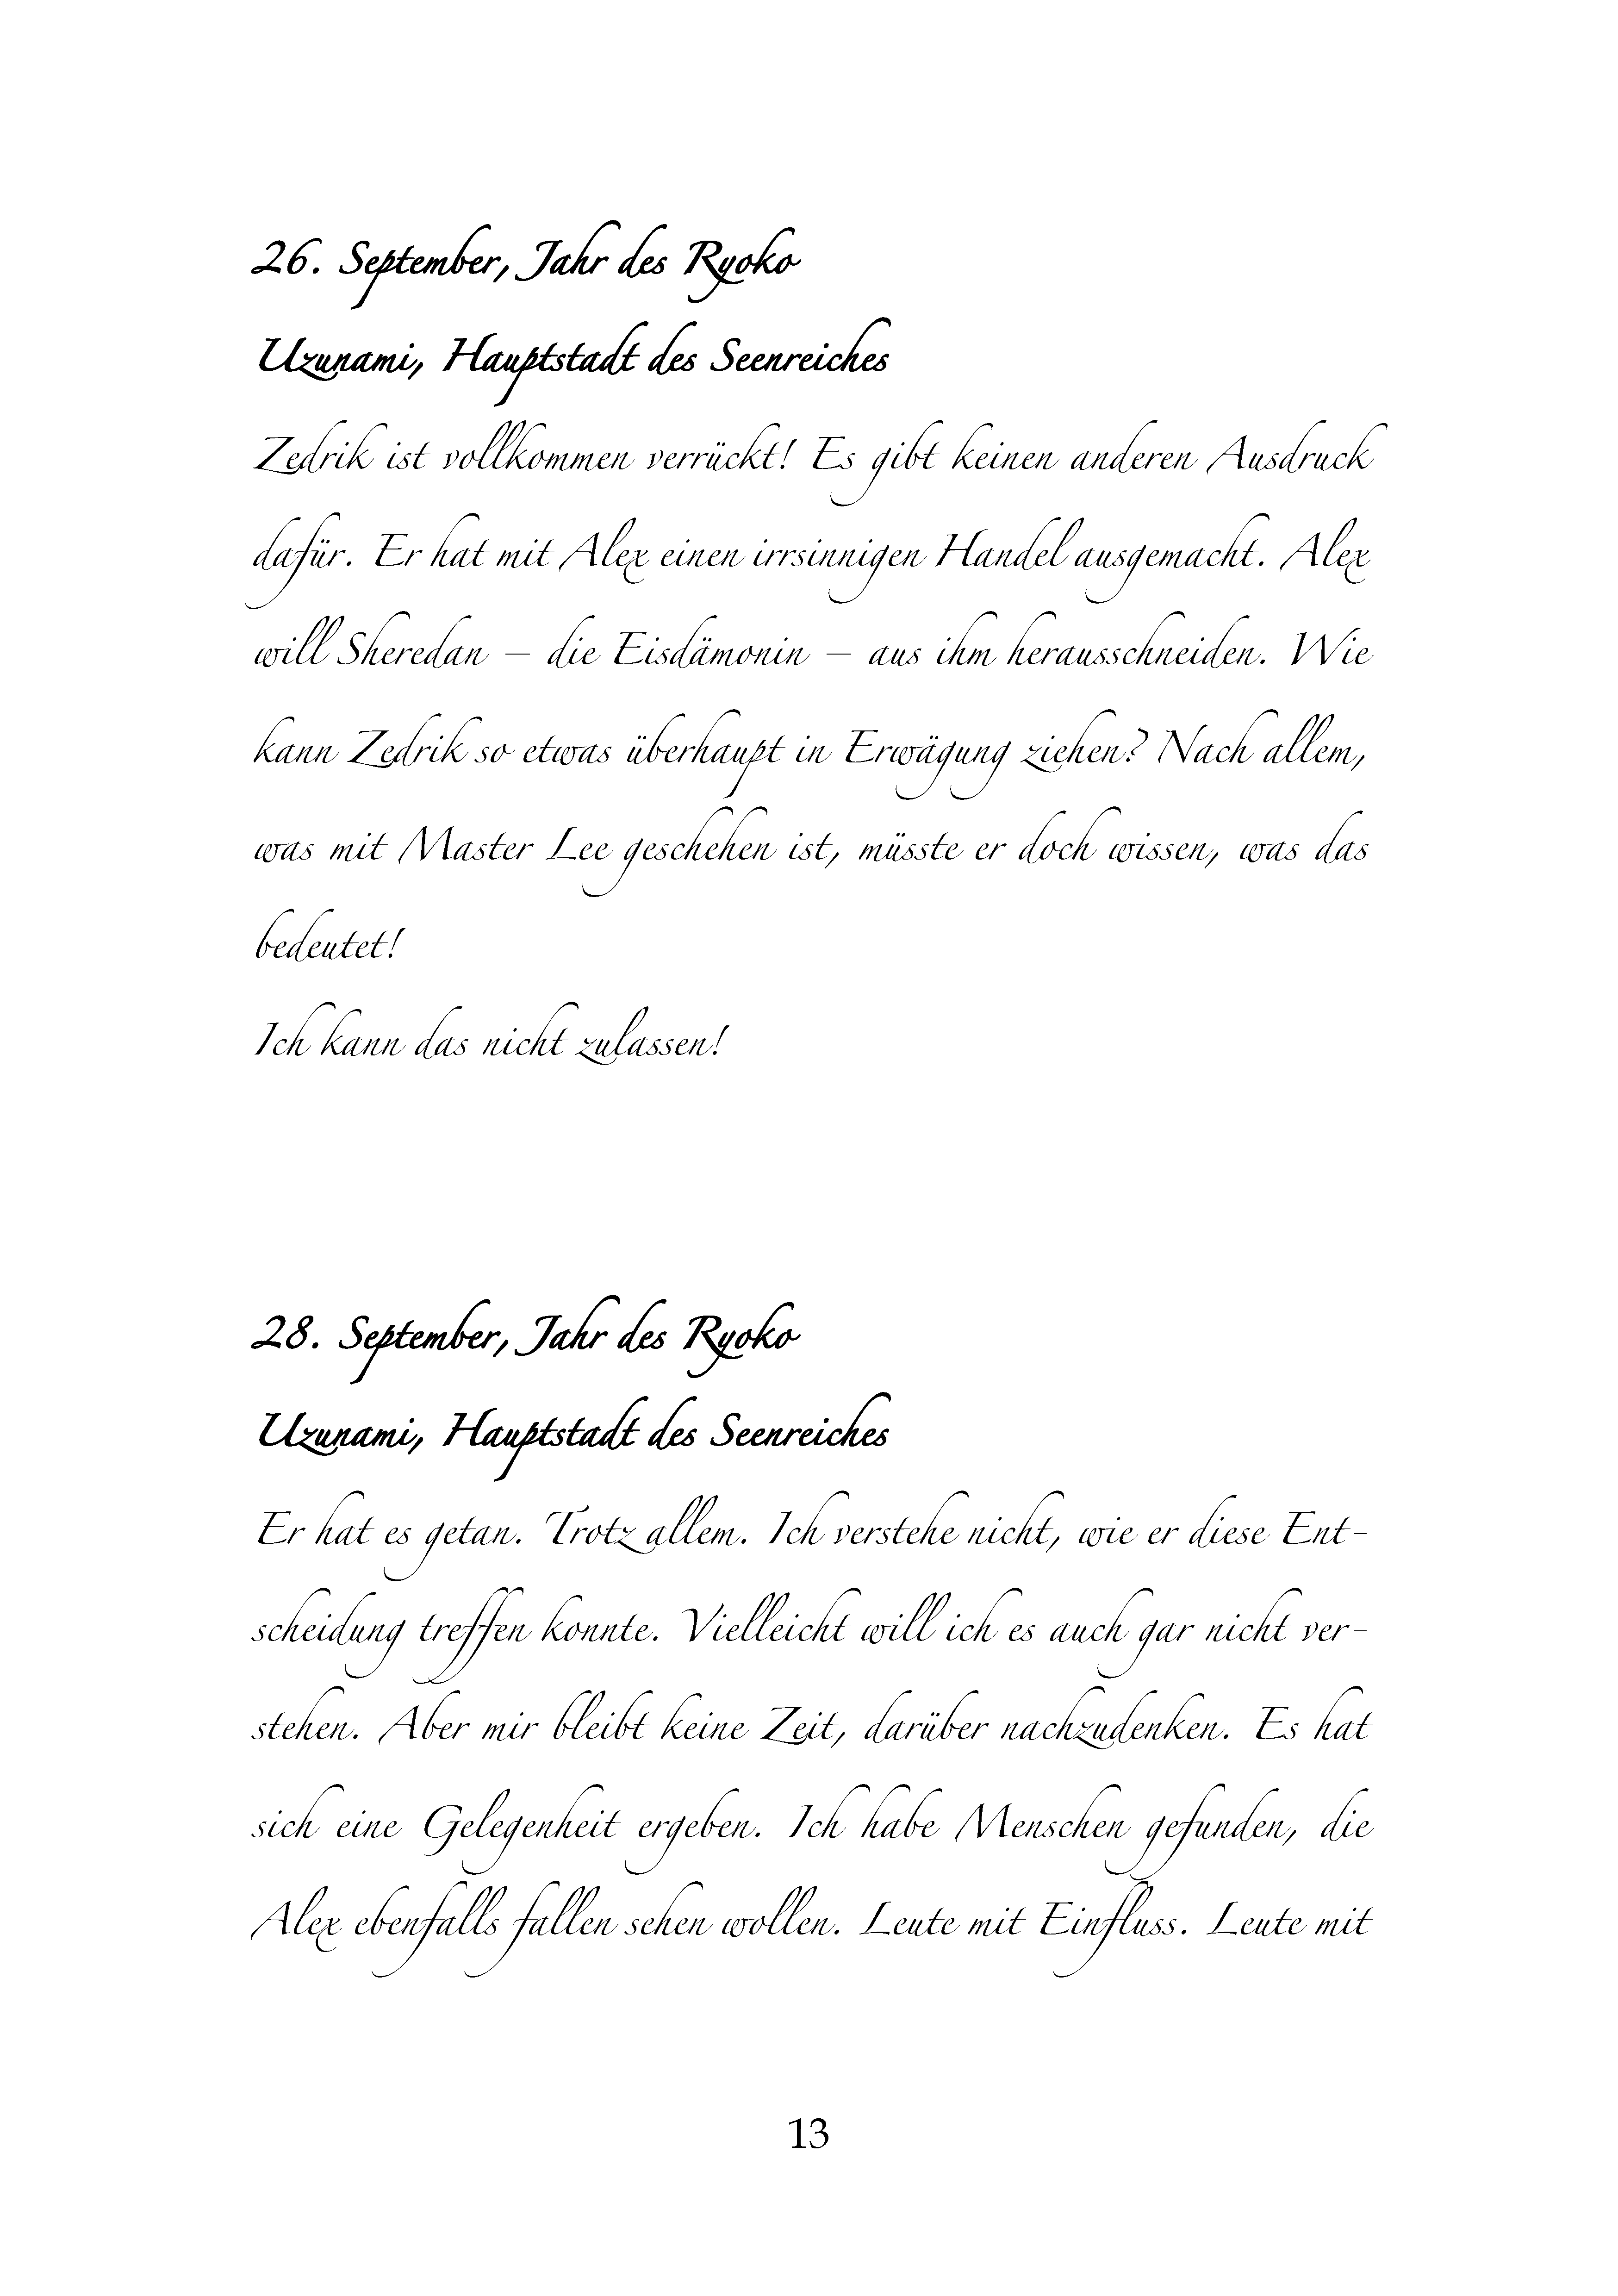 26. September, Jahr des Ryoko
Uzunami, Hauptstadt des Seenreiches
Zedrik ist vollkommen verrückt! Es gibt keinen anderen Ausdruck
dafür. Er hat mit Alex einen irrsinnigen Handel ausgemacht. Alex
will Sheredan – die Eisdämonin – aus ihm herausschneiden. Wie
kann Zedrik so etwas überhaupt in Erwägung ziehen? Nach allem,
was mit Master Lee geschehen ist, müsste er doch wissen, was das
bedeutet!
Ich kann das nicht zulassen!
28. September, Jahr des Ryoko
Uzunami, Hauptstadt des Seenreiches
Er hat es getan. Trotz allem. Ich verstehe nicht, wie er diese Ent-
scheidung treffen konnte. Vielleicht will ich es auch gar nicht ver-
stehen. Aber mir bleibt keine Zeit, darüber nachzudenken. Es hat
sich eine Gelegenheit ergeben. Ich habe Menschen gefunden, die
Alex ebenfalls fallen sehen wollen. Leute mit Einfluss. Leute mit
13